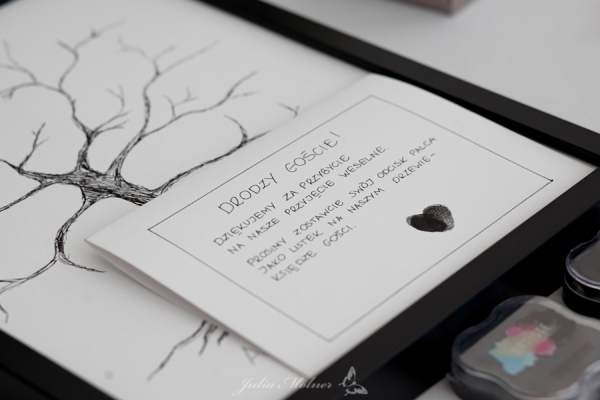 DRODZY GOŚCIE!
DZIĘKUJEMY ZA PRZYBYCIE
NA NASZE PRZYJĘCIE WESELNE.
PROSIMY ZOSTAWCIE SWÓJ ODCISK PALCA
JAKO LISTEK NA NASZYM DRZEWIE-
KSIĘDZE GOŚCI.
Julia Molner